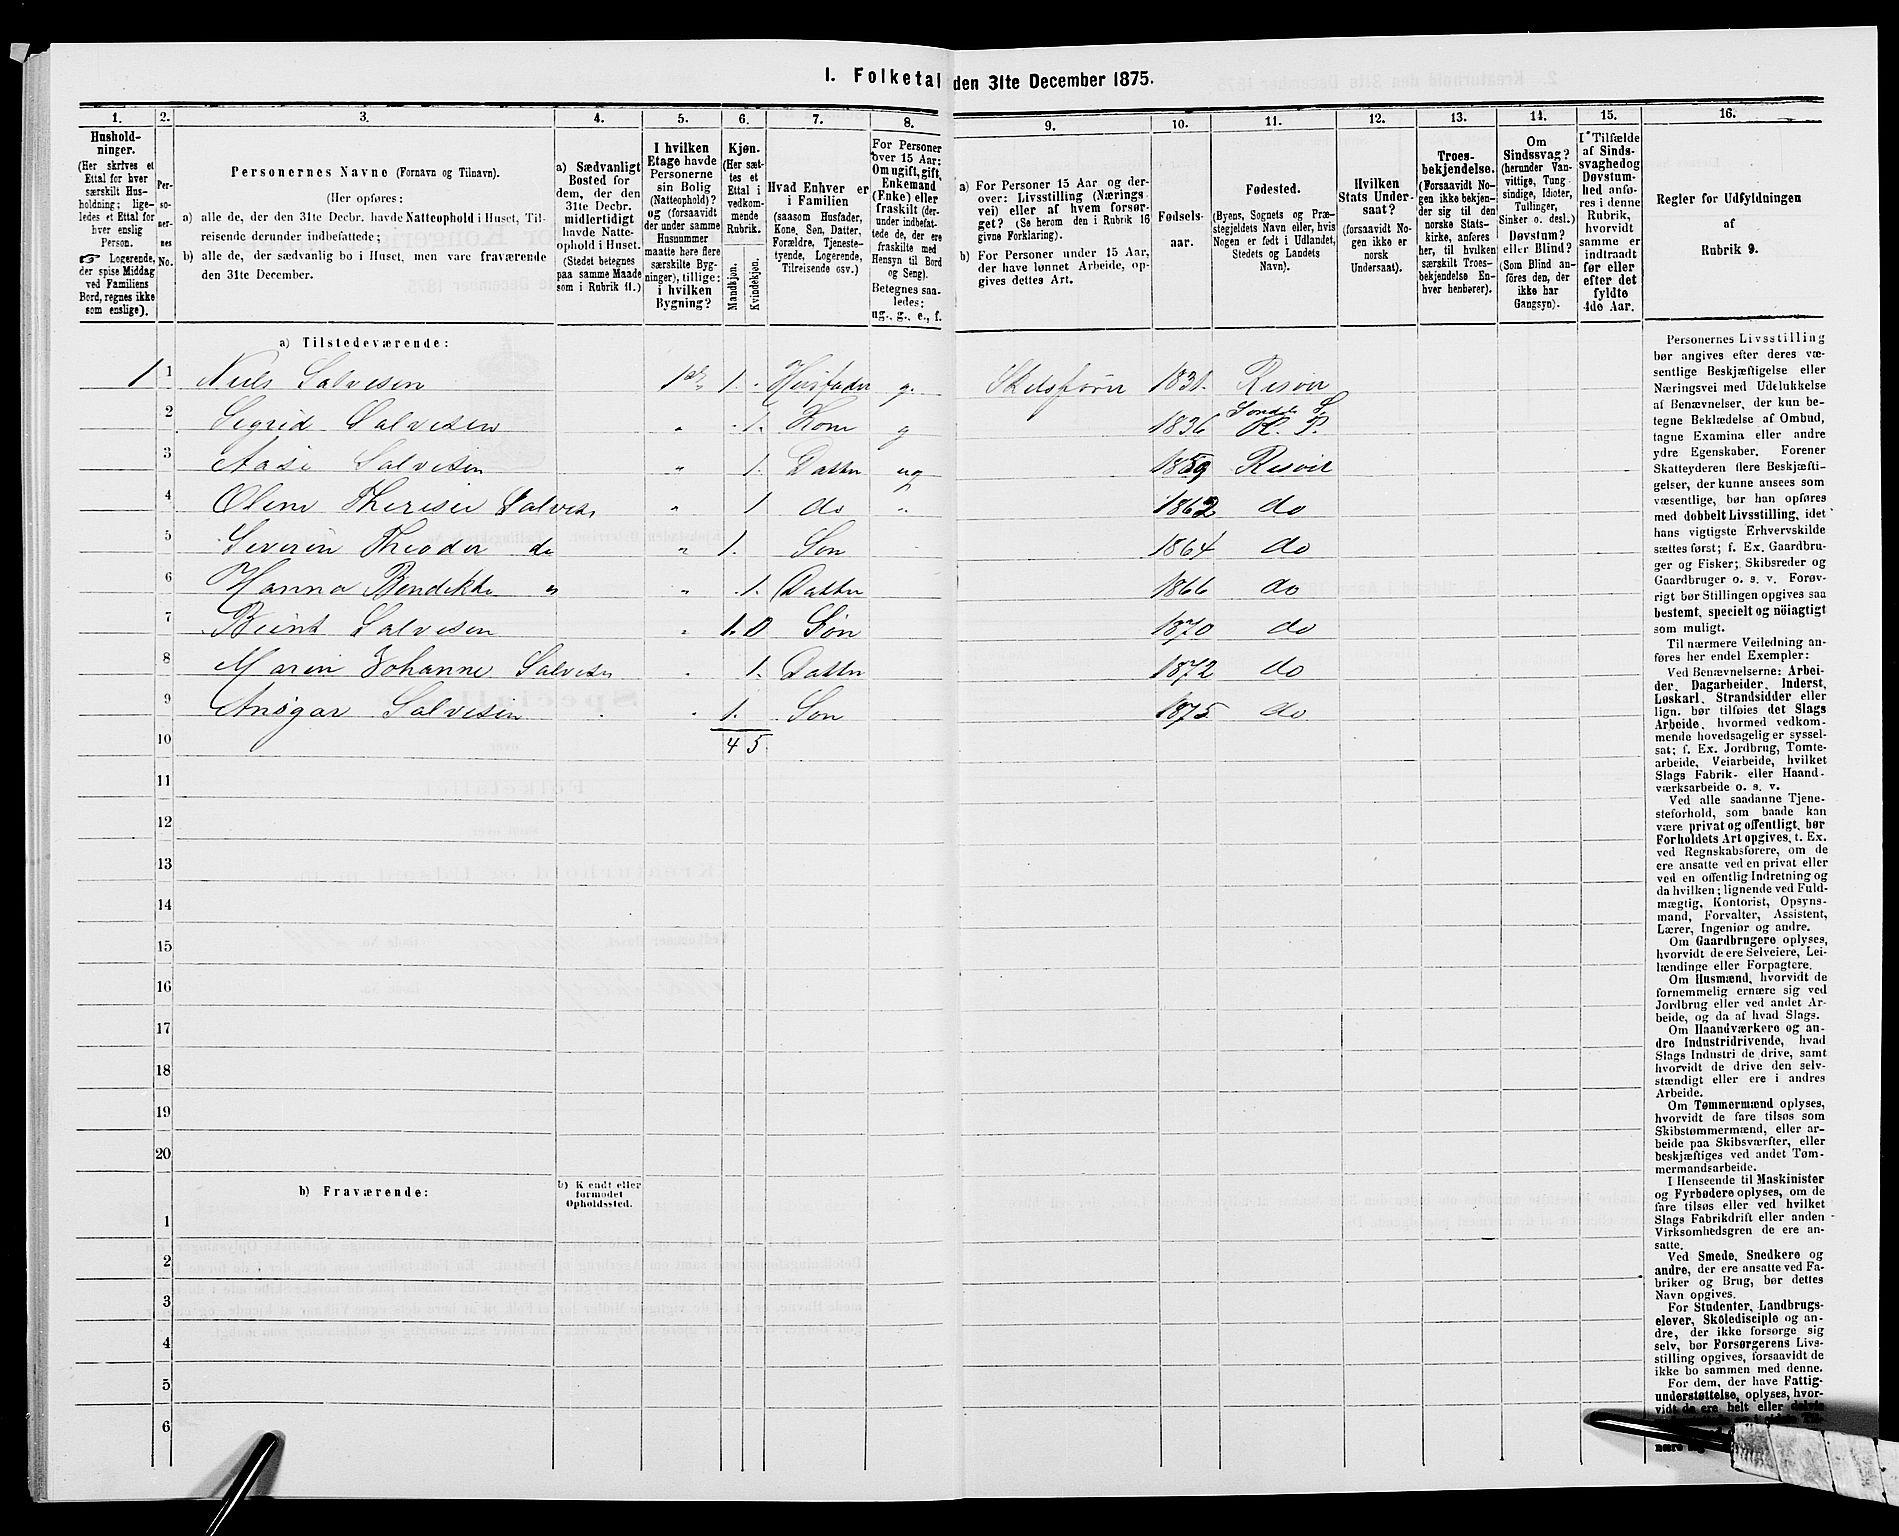 I. Folketal den 31te December 1875.
1.
Hushold-
ninger.
(Her skrives et
Ettal for hver
særskilt Hus-
holdning; lige-
ledes et Ettal for
hver enslig
Person.
☞ Logerende,
der spise Middag
ved Familiens
Bord, regnes ikke
som enslige).
2.
Per-
so-
ner-
nes
No.
3.
Personernes Navne (Fornavn og Tilnavn).
(Her opføres:
a) alle de, der den 31te Decbr. havde Natteophold i Huset, Til-
reisende derunder indbefattede;
b) alle de, der sædvanlig bo i Huset, men vare fraværende
den 31te December.
4.
a) Sædvanligt
Bosted for
dem, der den
31te Decbr.
midlertidigt
havde Natte-
ophold i Huset.
(Stedet betegnes
paa samme Maade
som i Rubrik 11.)
5.
I hvilken
Etage havde
Personerne
sin Bolig
(Natteophold)?
og (forsaavidt
der under samme
Husnummer
maatte høre flere
særskilte Byg-
ninger), tillige:
i hvilken
Bygning?
6.
Kjøn.
(Her sæt-
tes et
Ettal i
vedkom-
mende
Rubrik.
Mandkjøn.
Kvindekjøn.
7.
Hvad Enhver er
i Familien
(saasom Husfader,
Kone, Søn, Datter,
Forældre, Tjeneste-
tyende, Logerende,
Tilreisende osv.)
8.
For Personer
over 15 Aar:
Om ugift, gift,
Enkemand
(Enke) eller
fraskilt (der-
under indbefat-
tede de, der ere
fraskilte med
Hensyn til Bord
og Seng).
Betegnes saa-
ledes:
ug., g., e., f.
9.
a) For Personer 15 Aar og der-
over: Livsstilling (Nærings-
vei) eller af hvem forsør-
get? (Se herom den i Rubrik 16
givne Forklaring).
b) For Personer under 15 Aar,
der have lønnet Arbeide, op-
gives dettes Art.
10.
Fødsels-
aar.
11.
Fødested.
(Byens, Sognets og Præ-
stegjeldets Navn eller, hvis
Nogen er født i Udlandet,
Stedets og Landets
Navn).
12.
Hvilken
Stats Under-
saat?
(forsaavidt No-
gen ikke er
norsk
Undersaat).
13.
Troes-
bekjendelse.
(Forsaavidt No-
gen ikke bekjen-
der sig til den
norske Stats-
kirke, anføres
her, til hvilken
særskilt Troes-
bekjendelse En-
hver henhører).
14.
Om
Sindssvag?
(herunder Van-
vittige, Tung
sindige, Idioter,
Tullinger,
Sinker o. desl.)
Døvstum?
eller Blind?
(Som Blind an-
føres den, der
ikke har
Gangsyn).
15.
I Tilfælde
af Sinds-
svaghed og
Døvstum-
hed anfø-
res i denne
Rubrik,
hvorvidt
samme er
indtraadt
før eller
efter det
fyldte
4de Aar.
16.
Regler for Udfyldningen
af
Rubrik 9.
a) Tilstedeværende:
1 1 Niels Salvesen 1ste 1. Husfader g. 1831. Risøer
2 Sigrid Salvesen " 1. Kone g 1836
3 Aase Salvesen " 1. Datter ug 1859 Risøer
4 " 1 do " 1862 do
5 Severin Theodor do " 1. Søn 1864 do
6 Hanna Bendikte " " 1. Datter 1866 do
7 Salvesen " 1. 0 Søn 1870 do
8 Maren Johanne Salvesen 1. Datter 1872 do
9 Ansgar Salvesen " 1. Søn 1875. do
10 4 5
11
12
13
14
15
16
17
18
19
20
b) Fraværende:
b) Kjendt eller
formodet
Opholdssted.
1
2
3
4
5
6
Personernes Livsstilling
bør angives efter deres væ-
sentlige Beskjæftigelse eller
Næringsvei med Udelukkelse
af Benævnelser, der kun be-
tegne Beklædelse af Ombud,
tagne Examina eller andre
ydre Egenskaber. Forener
Skatteyderen flere Beskjæfti-
gelser, der kunne ansees som
væsentlige, bør han opføres
med dobbelt Livsstilling, idet
hans vigtigste Erhvervskilde
sættes først; f. Ex. Gaardbru-
ger og Fisker; Skibsreder og
Gaardbruger o. s. v. Forøv-
rigt bør Stillingen opgives saa
bestemt, specielt og nöiagtigt
som muligt.
Til nærmere Veiledning an-
føres her endel Exempler:
Ved Benævnelserne: Arbei-
der, Dagarbeider, Inderst,
Løskarl, Strandsidder eller
lign. bør tilføies det Slags
Arbeide, hvormed vedkom-
mende hovedsagelig er syssel-
sat; f. Ex. Jordbrug, Tomte-
arbeide, Veiarbeide, hvilket
Slags Fabrik- eller Haand-
værksarbeide o. s. v.
Ved alle saadanne Tjene-
steforhold, som baade kan
være privat og offentligt, bør
Forholdets Art opgives, t. Ex.
ved Regnskabsførere, om de
ere ansatte ved en privat eller
ved en offentlig Indretning og
da hvilken; lignende ved Fuld-
mægtig, Kontorist, Opsyns-
mand, Forvalter, Assistent,
Lærer, Ingeniør og andre.
Om Gaardbrugere oplyses,
hvorvidt de ere Selveiere, Lei-
lændinge eller Forpagtere.
Om Husmænd, hvorvidt de
fornemmelig ernære sig ved
Jordbrug eller ved andet Ar-
beide, og da af hvad Slags.
Om Haandværkere og an-
dre Industridrivende, hvad
Slags Industri de drive, samt
hvorvidt de drive den selv-
stændigt eller ere i andres
Arbeide.
Om Tømmermænd oplyses,
hvorvidt de fare tilsøs som
Skibstømmermænd, eller ar-
beide paa Skibsværfter, eller
beskjæftiges ved andet Tøm-
mermandsarbeide.
I Henseende til Maskinister
og Fyrbødere oplyses, om de
fare tilsøs eller ved hvilket
Slags Fabrikdrift eller anden
Virksomhedsgren de ere an-
satte.
Ved Smede, Snedkere og
andre, der ere ansatte ved Fa-
briker og Brug, bør dettes
Navn opgives.
For Studenter, Landbrugs-
elever, Skoledisciple og an-
dre, der ikke forsørge sig
selv, bør Forsørgerens Livs-
stilling opgives, forsaavidt de
ikke bo sammen med denne.
For dem, der have Fattig-
understøttelse, oplyses, hvor-
vidt de ere helt eller delvis